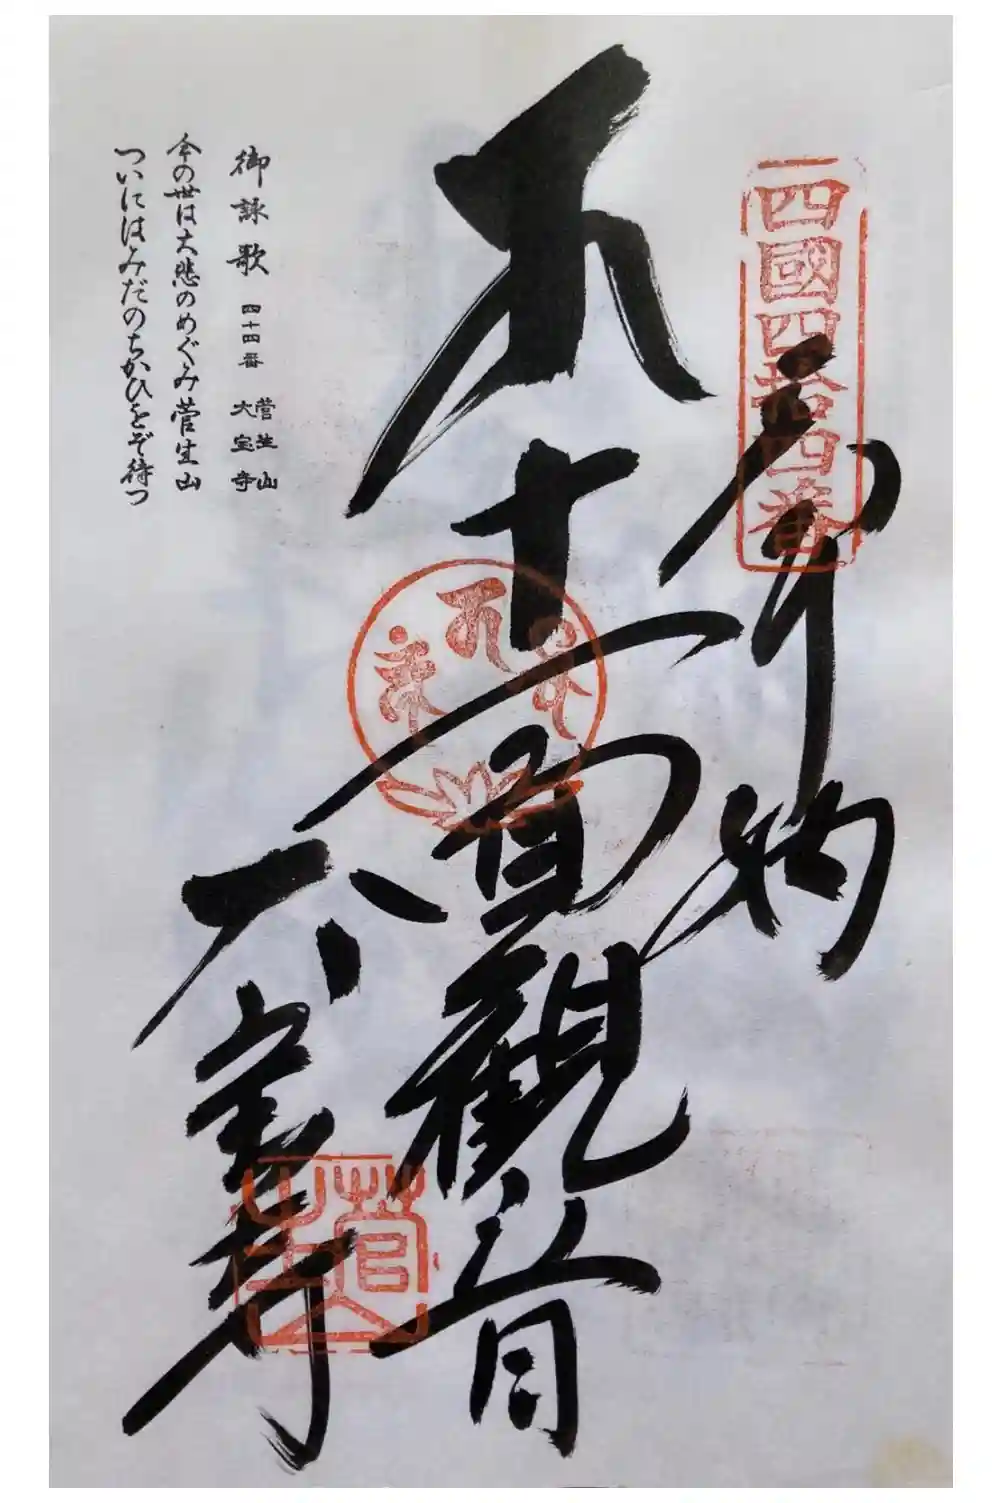 四國四拾四番
奉納
十一面觀音
大宝寺
菅生山
御詠歌 四十四番 菅生山 大宝寺
今の世は大悲のめぐみ菅生山
ついにはみだのちかひをぞ待つ